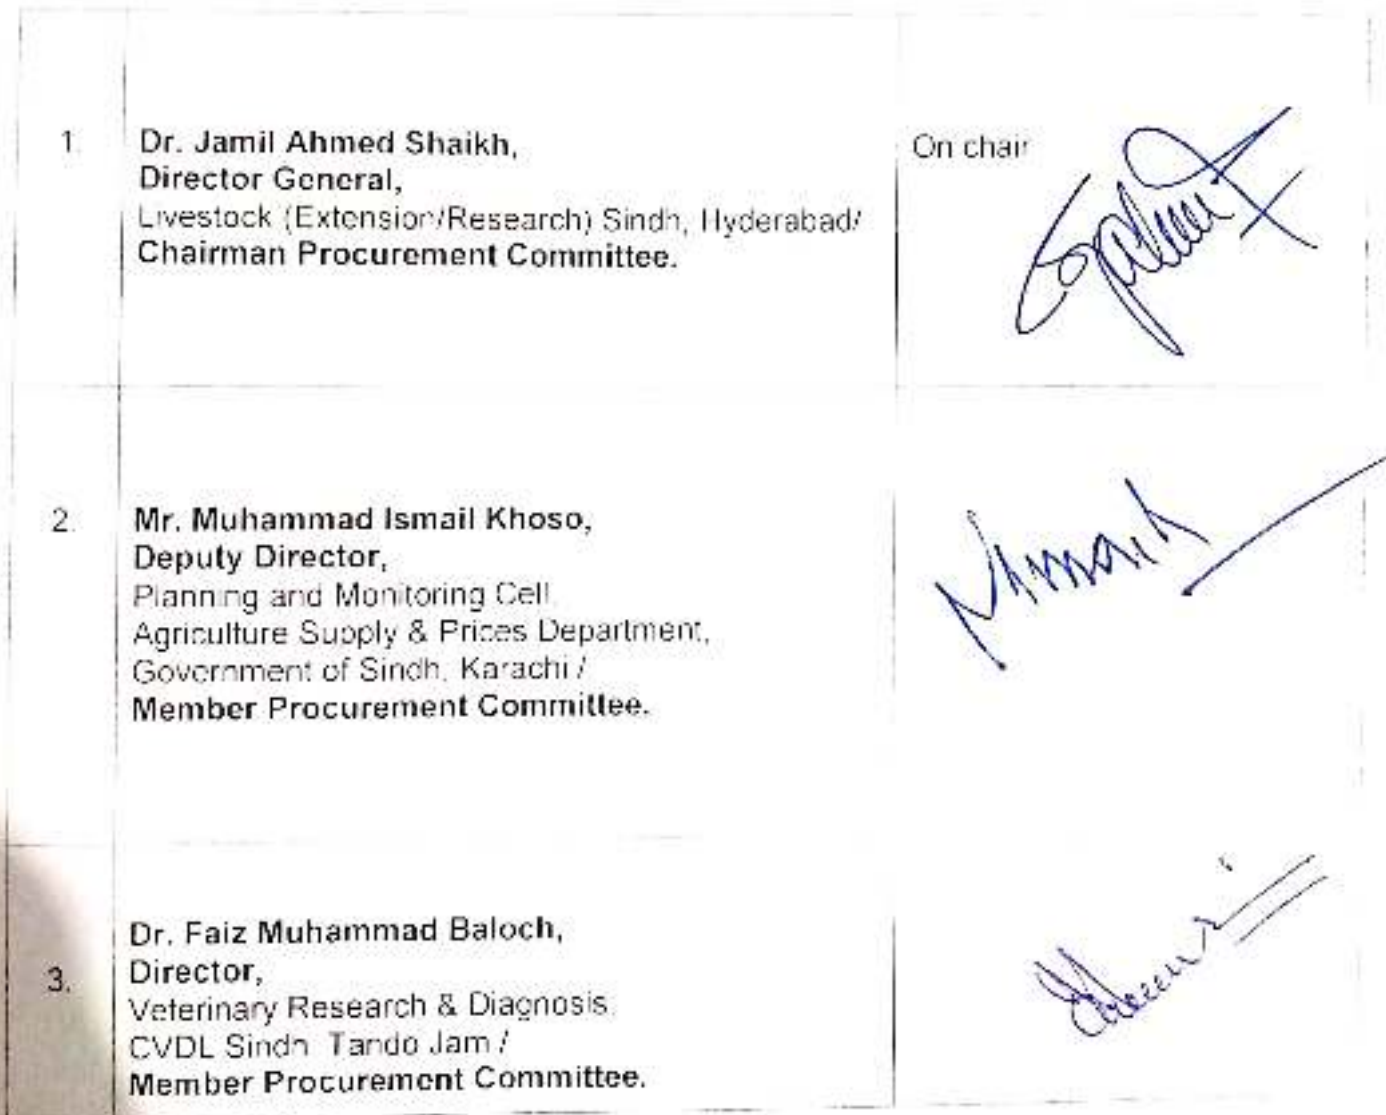 1.
Dr. Jamil Ahmed Shaikh,
Director General,
Livestock (Extension/Research) Sindh, Hyderabad/
Chairman Procurement Committee.
On chair
2.
Mr. Muhammad Ismail Khoso,
Deputy Director,
Planning and Monitoring Cell,
Agriculture Supply & Prices Department,
Government of Sindh, Karachi /
Member Procurement Committee.
3.
Dr. Faiz Muhammad Baloch,
Director,
Veterinary Research & Diagnosis,
CVDL Sindh Tando Jam /
Member Procurement Committee.